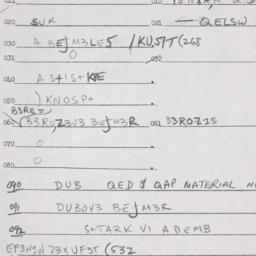 020 SUK 021 QELSW
030 A BEJM3LE5 /KUSIT(268
031 O 032
040 A S+IS+K8E
050 \KNOSP+
B3RE
060 B3ROZ3V3 BEJM3R 061 B3ROZ1S
070 O
080 O
090 DUB QED $ QAP MATERIAL
091 DUBOV3 BEJM3R
092 S+TARK VI A DEMB
EP3N9N 73XUF3T (532